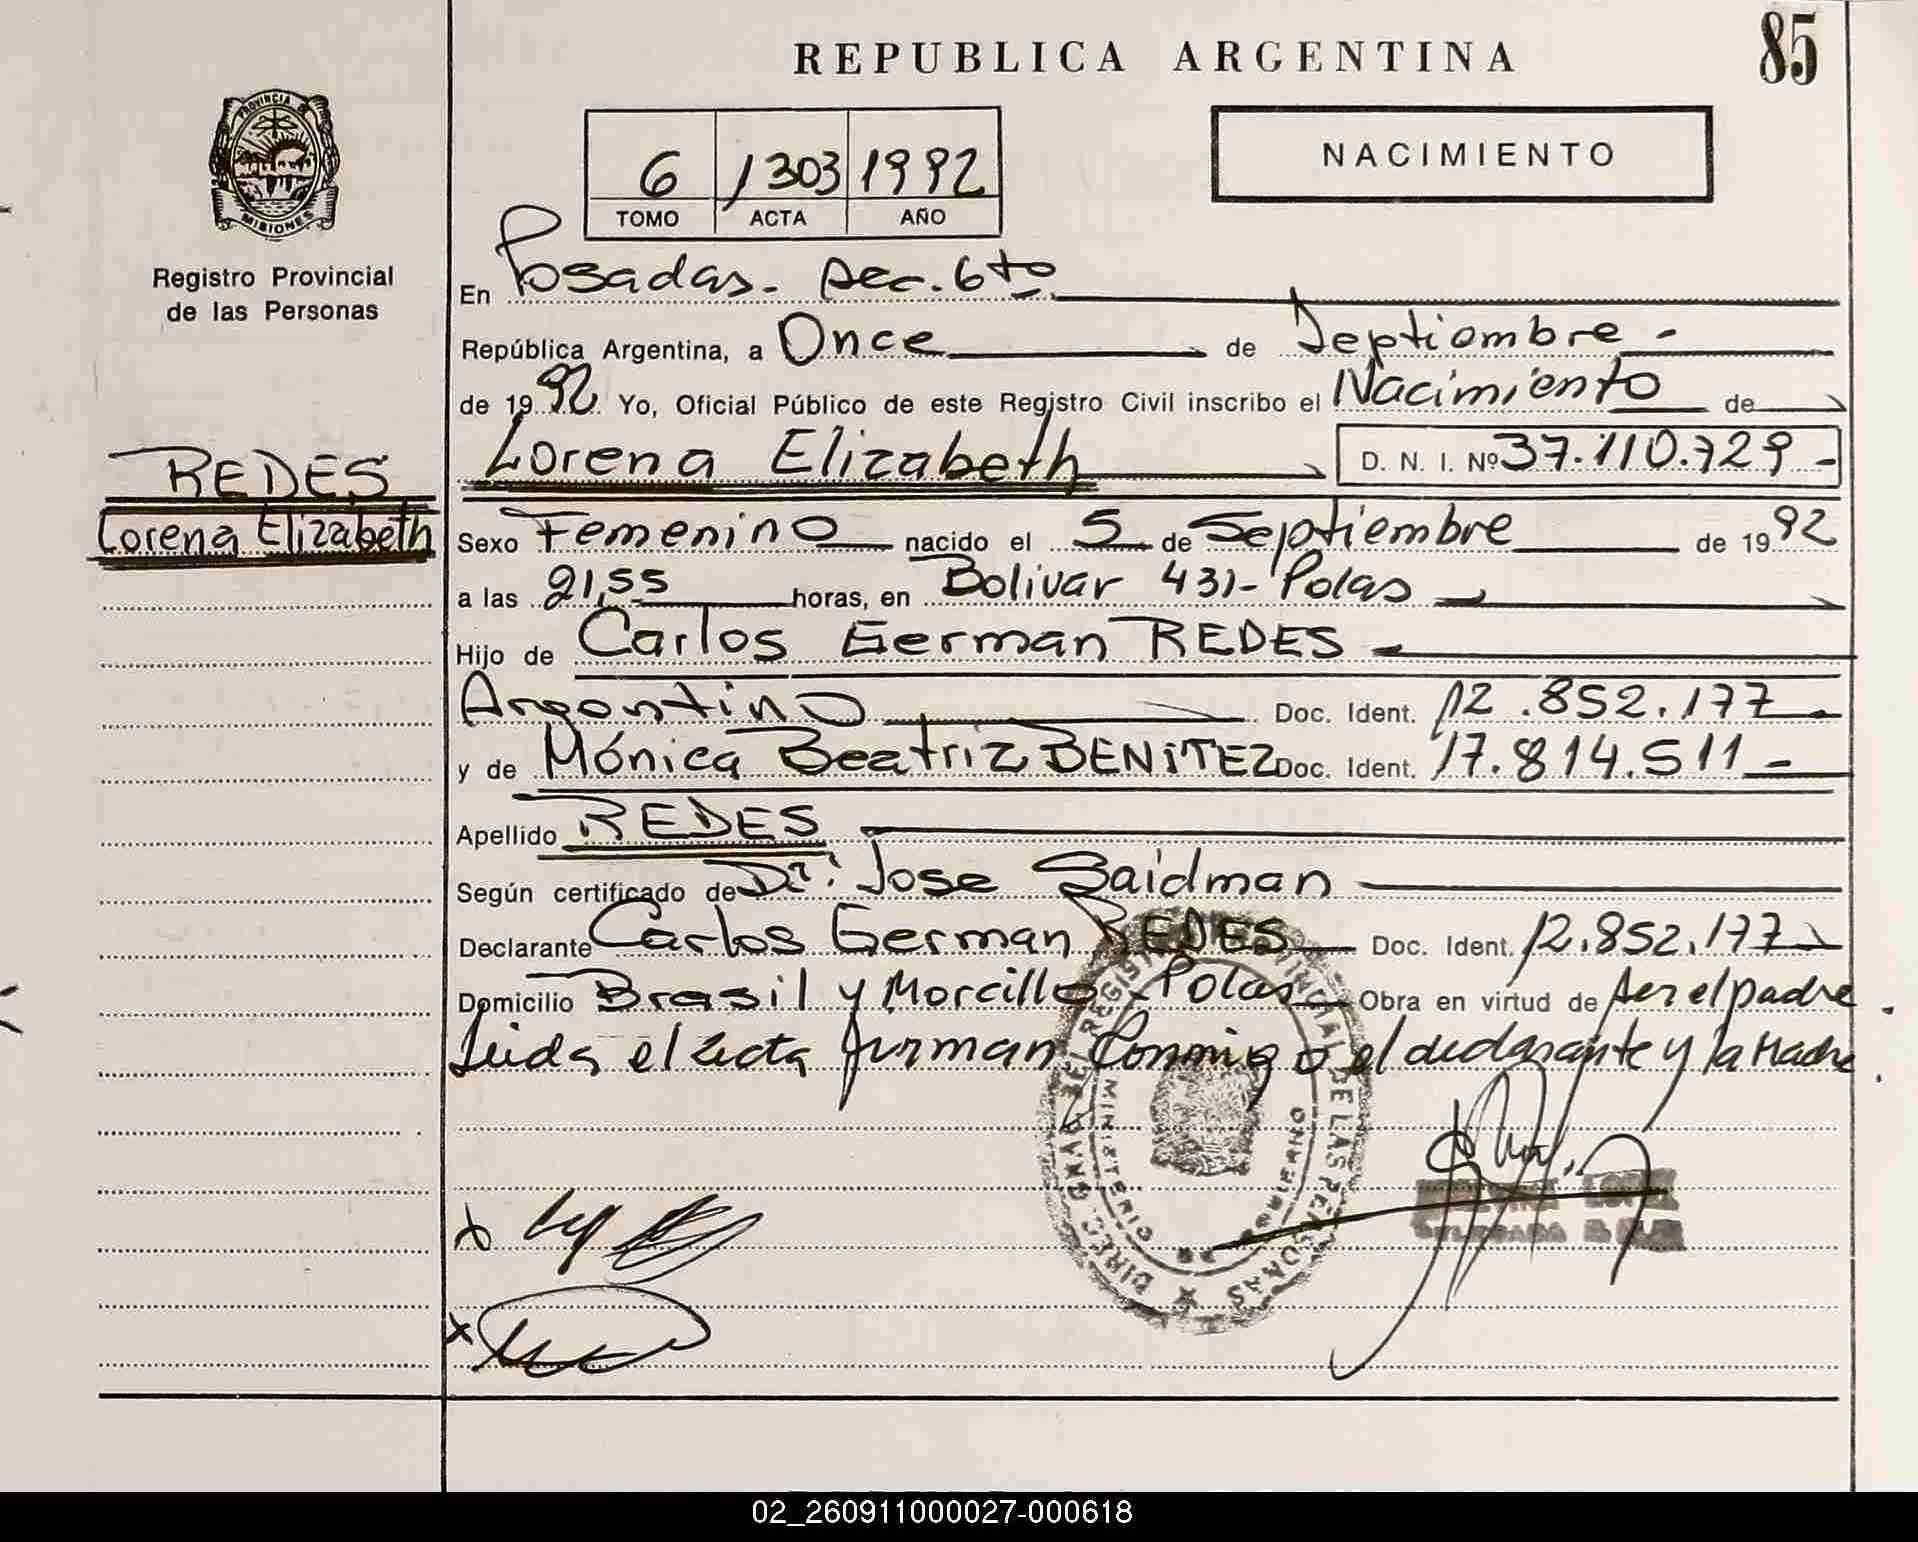 REPUBLICA ARGENTINA
85
PROVINCIA DE
MISIONES
Registro Provincial
de las Personas
NACIMIENTO
6 1303 1992
TOMO ACTA AÑO
En Posadas - Sec. 6to
República Argentina, a Once de Septiembre -
de 1992. Yo, Oficial Público de este Registro Civil inscribo el Nacimiento de
Lorena Elizabeth D. N. I. Nº 37.110.729 -
REDES
Lorena Elizabeth
Sexo Femenino nacido el 5 de Septiembre de 1992
a las 21,55 horas, en Bolivar 431 - Pdas
Hijo de Carlos German REDES
Argentino Doc. Ident. 12.852.177
y de Mónica Beatriz BENITEZ Doc. Ident. 17.814.511 -
Apellido REDES
Según certificado de Dr: Jose Saidman
Declarante Carlos German REDES Doc. Ident. 12.852.177
Domicilio Brasil y Morcillo - Pdas Obra en virtud de ser el padre.
Leida el acta firman conmigo el declarante y la Madre.
DIRECCIONS DEL REGISTRO PROVINCIAL DE LAS PERSONAS
MINISTERIO GOBIERNO
02_260911000027-000618